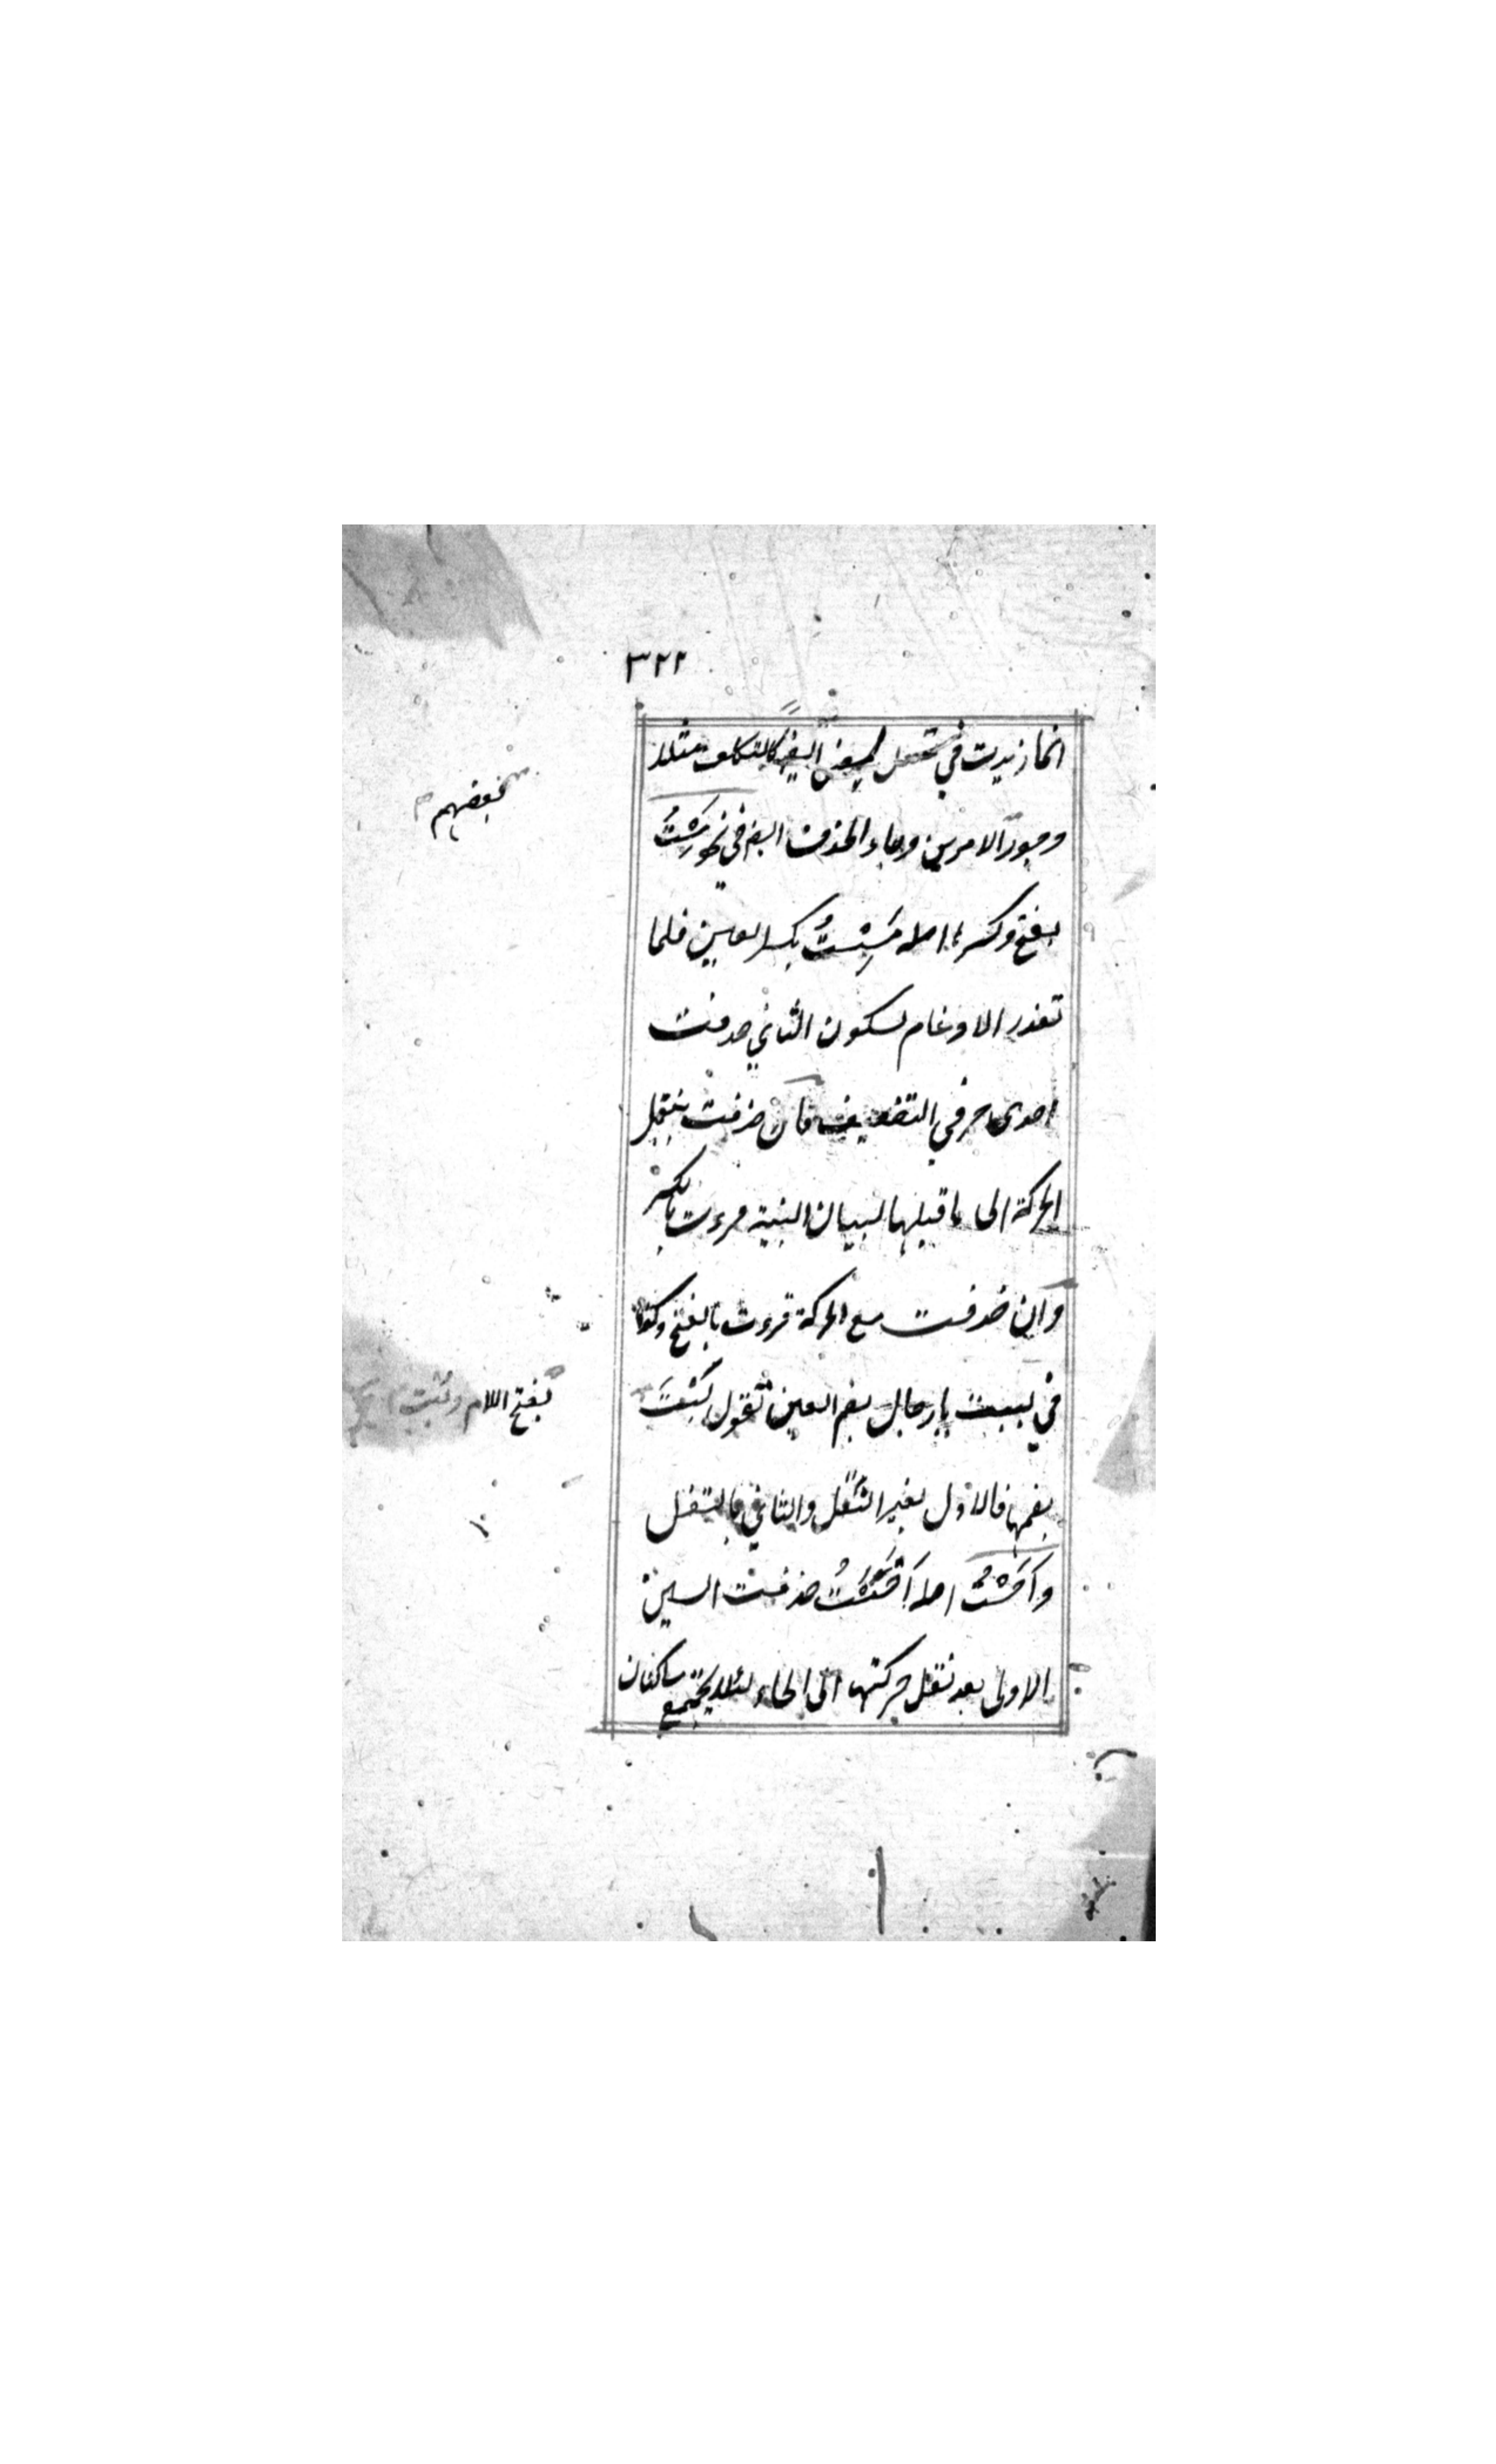 ٣٢٢
انما زيدت في تفعل لمعنى ايضا كالتكلف مثلا
وجوز الامرين وجاء الحذف ايضا في نحو مَِسْتُ
بفتح وكسر اصله مَسِسْتُ بكسر العين فلما
تعذر الادغام لسكون الثاني حذفت
احدى حرفي التضعيف فان حذفت بنقل
الحركة الى ما قبلها لبيان البنية قرءت بالكسر
وان حذفت مع الحركة قرءت بالفتح وكذا
في لببت يا رجل بضم العين تقول لَبْتَ
بضمها فالاول بغير النقل والثاني بالنقل
وَاَحَسْتُ اصله اَحْسَسْتُ حذفت السين
الاولى بعد نقل حركتها الى الحاء لئلا يجتمع ساكنان
بعضهم
بفتح اللام ولبت